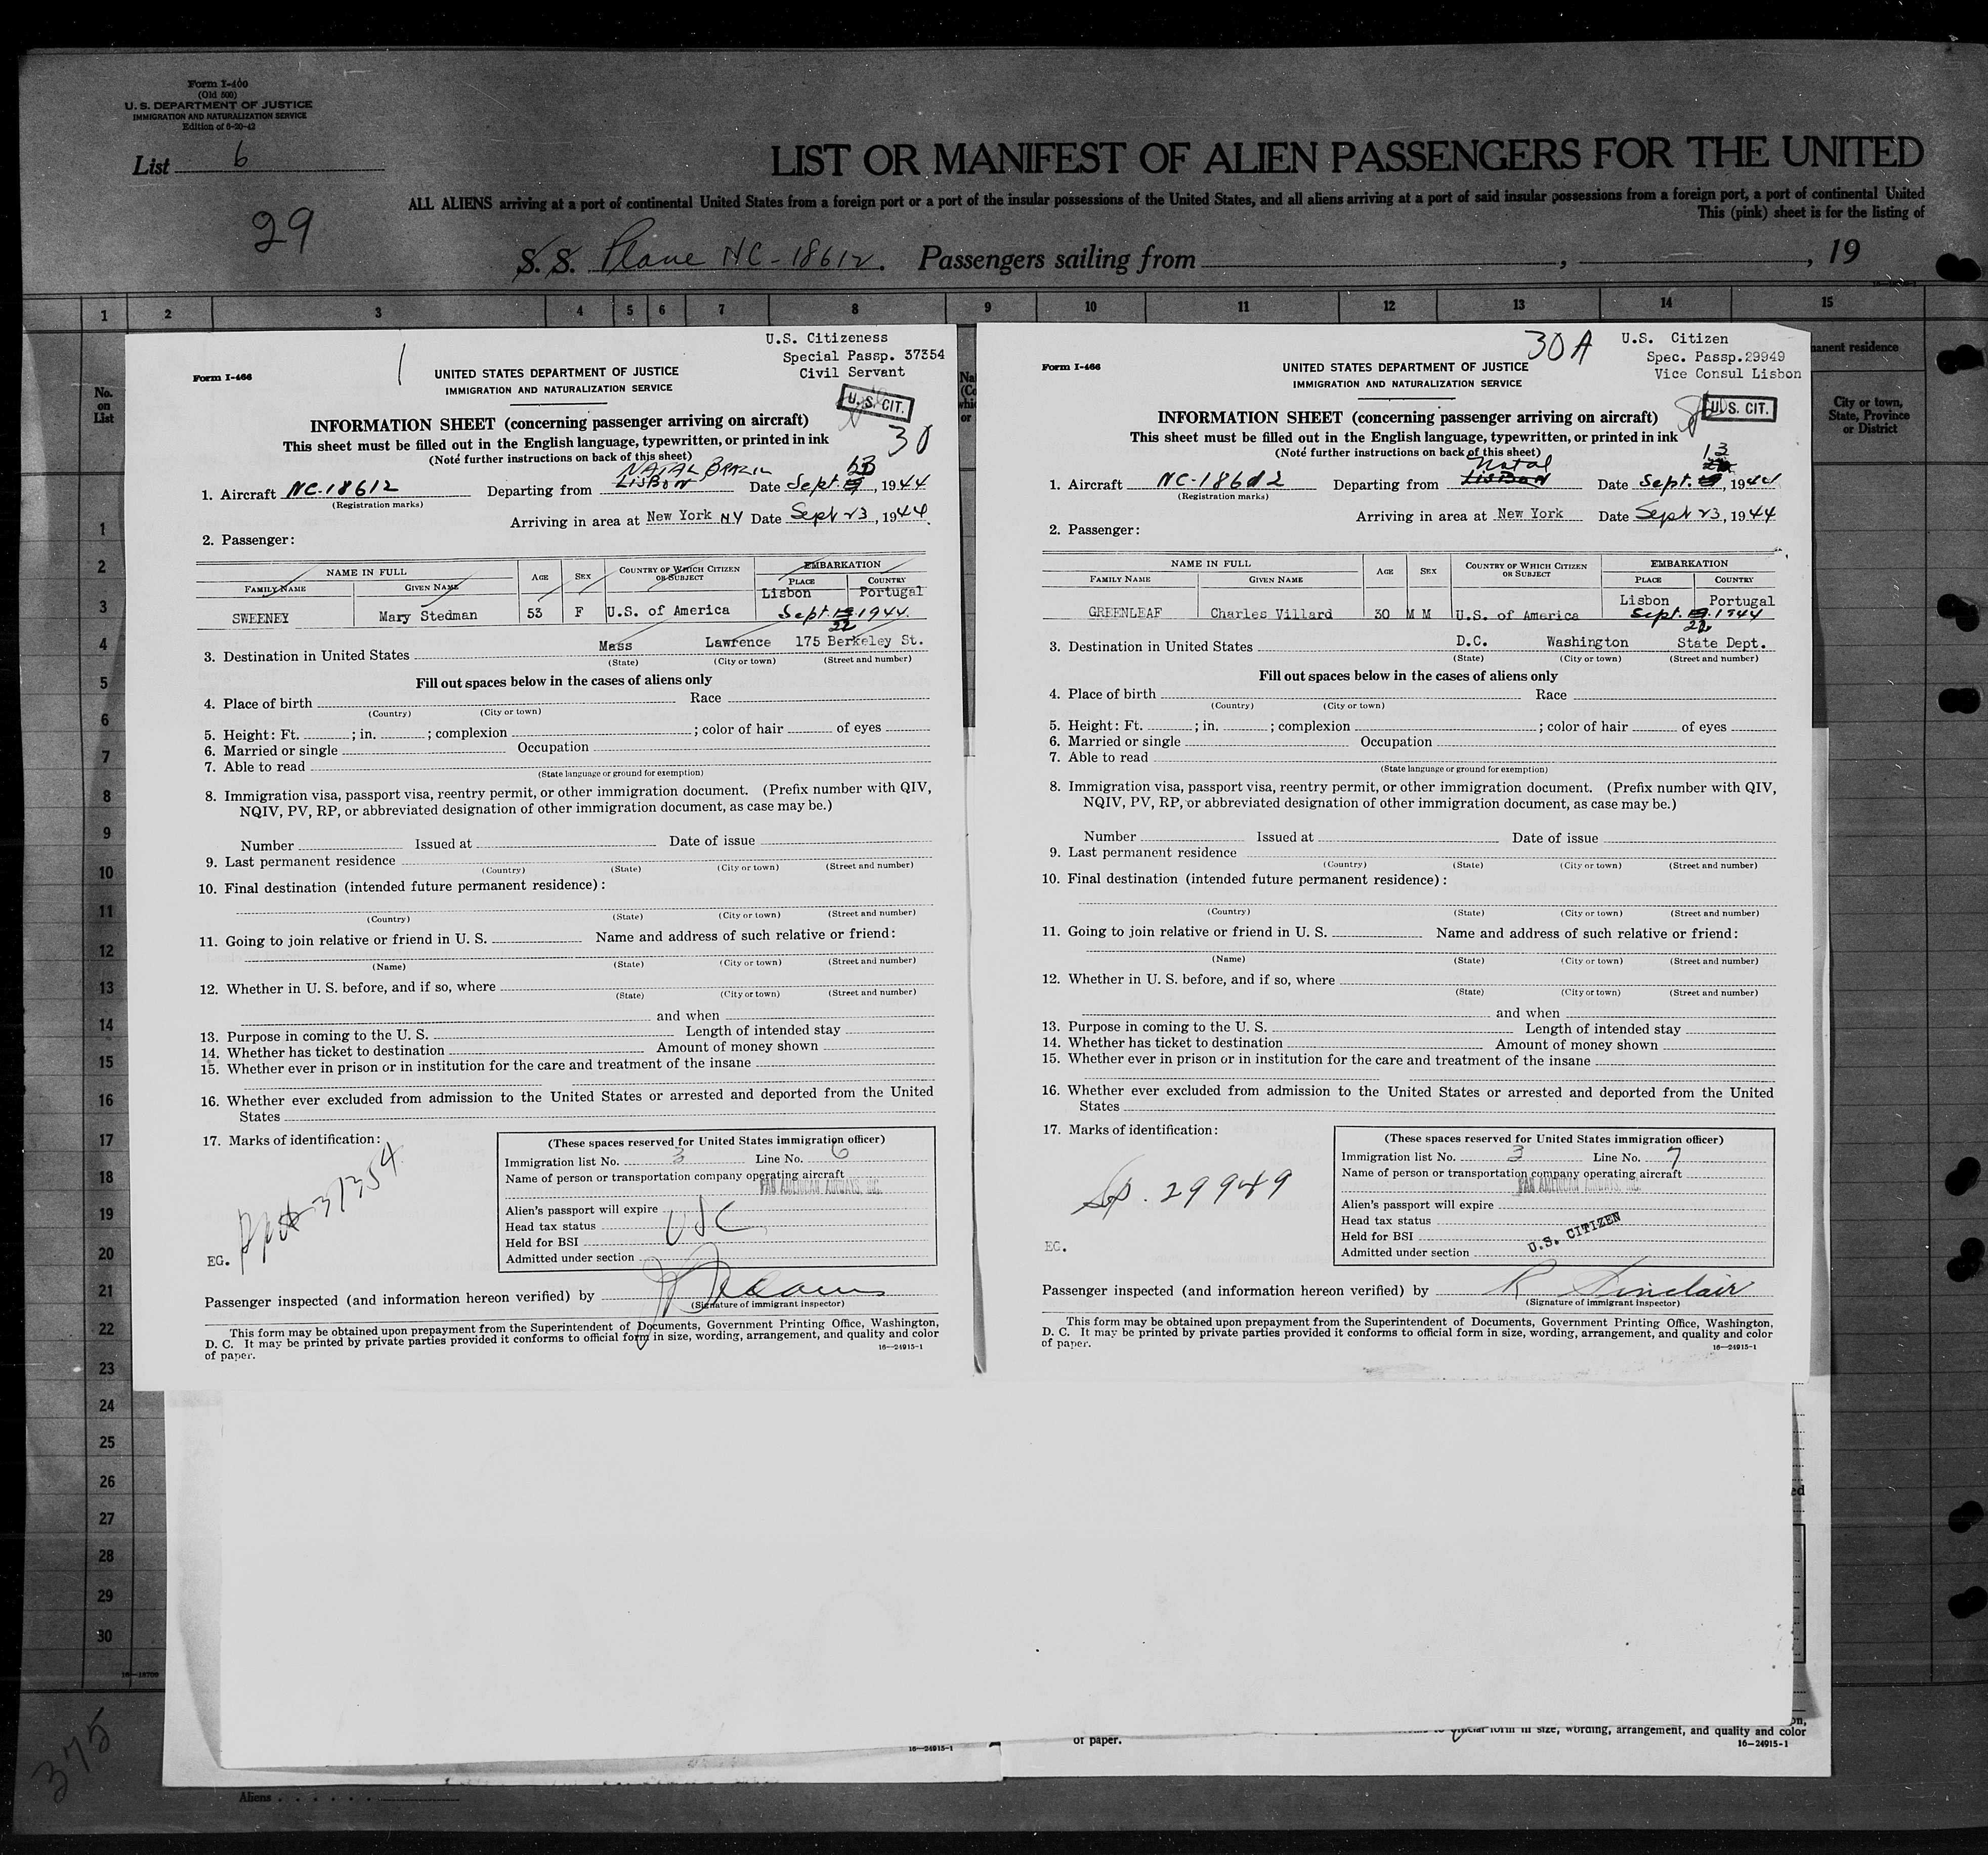 Form I-400
(Old 500)
U. S. DEPARTMENT OF JUSTICE
IMMIGRATION AND NATURALIZATION SERVICE
Edition of 6-20-42
List 6
29
LIST OR MANIFEST OF ALIEN PASSENGERS FOR THE UNITED
ALL ALIENS arriving at a port of continental United States from a foreign port or a port of the insular possessions of the United States, and all aliens arriving at a port of said insular possessions from a foreign port, a port of continental United
This (pink) sheet is for the listing of
S. S. Plane NC-18612. Passengers sailing from , , 19
1 2 3 4 5 6 7 8 9 10 11 12 13 14 15
No. on List
manent residence
City or town, State, Province or District
1
2
3
4
5
6
7
8
9
10
11
12
13
14
15
16
17
18
19
20
21
22
23
24
25
26
27
28
29
30
U.S. Citizeness
Special Passp. 37354
Civil Servant
Form I-466
UNITED STATES DEPARTMENT OF JUSTICE
IMMIGRATION AND NATURALIZATION SERVICE
U.S. CIT.
30
INFORMATION SHEET (concerning passenger arriving on aircraft)
This sheet must be filled out in the English language, typewritten, or printed in ink
(Note further instructions on back of this sheet)
NATAL, BRAZIL
1. Aircraft NC-18612 Departing from LISBON Date Sept. , 1944
(Registration marks)
Arriving in area at New York NY Date Sept 23, 1944
2. Passenger:
NAME IN FULL AGE SEX COUNTRY OF WHICH CITIZEN OR SUBJECT EMBARKATION
FAMILY NAME GIVEN NAME PLACE COUNTRY
Lisbon Portugal
SWEENEY Mary Stedman 53 F U.S. of America Sept. 1944
22
3. Destination in United States Mass Lawrence 175 Berkeley St.
(State) (City or town) (Street and number)
Fill out spaces below in the cases of aliens only
4. Place of birth Race
(Country) (City or town)
5. Height: Ft. ; in. ; complexion ; color of hair of eyes
6. Married or single Occupation
7. Able to read
(State language or ground for exemption)
8. Immigration visa, passport visa, reentry permit, or other immigration document. (Prefix number with QIV,
NQIV, PV, RP, or abbreviated designation of other immigration document, as case may be.)
Number Issued at Date of issue
9. Last permanent residence
(Country) (State) (City or town) (Street and number)
10. Final destination (intended future permanent residence):
(Country) (State) (City or town) (Street and number)
11. Going to join relative or friend in U. S. Name and address of such relative or friend:
(Name) (State) (City or town) (Street and number)
12. Whether in U. S. before, and if so, where
(State) (City or town) (Street and number)
and when
13. Purpose in coming to the U. S. Length of intended stay
14. Whether has ticket to destination Amount of money shown
15. Whether ever in prison or in institution for the care and treatment of the insane
16. Whether ever excluded from admission to the United States or arrested and deported from the United
States
17. Marks of identification:
Ppt 37354
EG.
(These spaces reserved for United States immigration officer)
Immigration list No. 3 Line No. 6
Name of person or transportation company operating aircraft
PAN AMERICAN AIRWAYS, INC.
Alien's passport will expire
Head tax status USC
Held for BSI
Admitted under section
Passenger inspected (and information hereon verified) by
(Signature of immigrant inspector)
This form may be obtained upon prepayment from the Superintendent of Documents, Government Printing Office, Washington,
D. C. It may be printed by private parties provided it conforms to official form in size, wording, arrangement, and quality and color
of paper.
16—24915-1
30A
U.S. Citizen
Spec. Passp.29949
Vice Consul Lisbon
Form I-466
UNITED STATES DEPARTMENT OF JUSTICE
IMMIGRATION AND NATURALIZATION SERVICE
U.S. CIT.
INFORMATION SHEET (concerning passenger arriving on aircraft)
This sheet must be filled out in the English language, typewritten, or printed in ink
(Note further instructions on back of this sheet)
Natal 13
1. Aircraft NC-18612 Departing from Lisbon Date Sept. , 1944
(Registration marks)
Arriving in area at New York Date Sept 23, 1944
2. Passenger:
NAME IN FULL AGE SEX COUNTRY OF WHICH CITIZEN OR SUBJECT EMBARKATION
FAMILY NAME GIVEN NAME PLACE COUNTRY
Lisbon Portugal
GREENLEAF Charles Villard 30 M M U.S. of America Sept. 1944
22
3. Destination in United States D.C. Washington State Dept.
(State) (City or town) (Street and number)
Fill out spaces below in the cases of aliens only
4. Place of birth Race
(Country) (City or town)
5. Height: Ft. ; in. ; complexion ; color of hair of eyes
6. Married or single Occupation
7. Able to read
(State language or ground for exemption)
8. Immigration visa, passport visa, reentry permit, or other immigration document. (Prefix number with QIV,
NQIV, PV, RP, or abbreviated designation of other immigration document, as case may be.)
Number Issued at Date of issue
9. Last permanent residence
(Country) (State) (City or town) (Street and number)
10. Final destination (intended future permanent residence):
(Country) (State) (City or town) (Street and number)
11. Going to join relative or friend in U. S. Name and address of such relative or friend:
(Name) (State) (City or town) (Street and number)
12. Whether in U. S. before, and if so, where
(State) (City or town) (Street and number)
and when
13. Purpose in coming to the U. S. Length of intended stay
14. Whether has ticket to destination Amount of money shown
15. Whether ever in prison or in institution for the care and treatment of the insane
16. Whether ever excluded from admission to the United States or arrested and deported from the United
States
17. Marks of identification:
Sp. 29949
EG.
(These spaces reserved for United States immigration officer)
Immigration list No. 3 Line No. 7
Name of person or transportation company operating aircraft
PAN AMERICAN AIRWAYS, INC.
Alien's passport will expire
Head tax status
Held for BSI U.S. CITIZEN
Admitted under section
Passenger inspected (and information hereon verified) by R Sinclair
(Signature of immigrant inspector)
This form may be obtained upon prepayment from the Superintendent of Documents, Government Printing Office, Washington,
D. C. It may be printed by private parties provided it conforms to official form in size, wording, arrangement, and quality and color
of paper.
16—24915-1
16—18700
official form in size, wording, arrangement, and quality and color
of paper.
16—24915-1
16—24915-1
375
Aliens